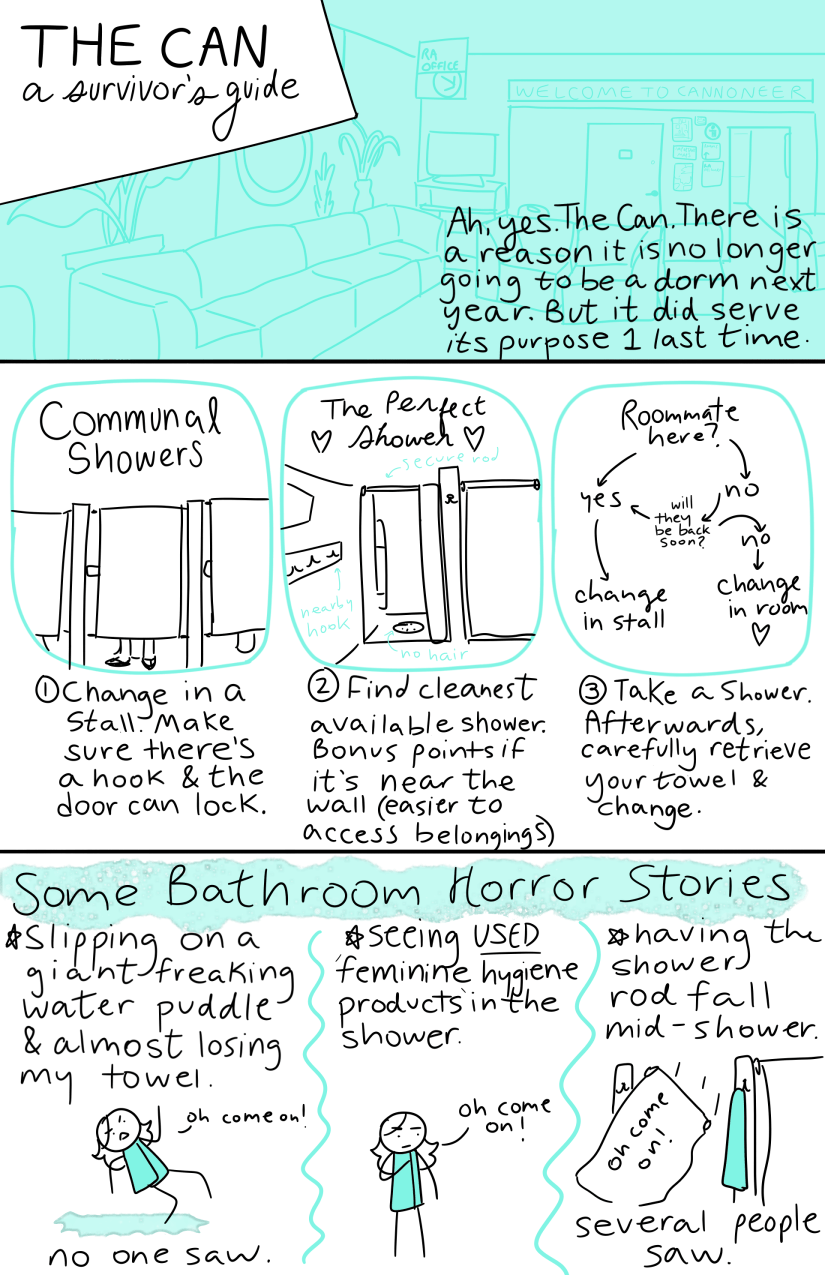 THE CAN
a survivor's guide
RA
OFFICE
WELCOME TO CANNONEER
Ah, yes. The Can. There is
a reason it is no longer
going to be a dorm next
year. But it did serve
its purpose 1 last time.
Communal
Showers
① Change in a
stall. Make
sure there's
a hook & the
door can lock.
The Perfect
♡ Shower ♡
secure rod
nearby
hook
no hair
② Find cleanest
available shower.
Bonus points if
it's near the
wall (easier to
access belongings)
Roommate
here?
yes
no
will
they
be back
soon?
no
change
in stall
change
in room
♡
③ Take a Shower.
Afterwards,
carefully retrieve
your towel &
change.
Some Bathroom Horror Stories
☆ Slipping on a
giant freaking
water puddle
& almost losing
my towel.
oh come on!
no one saw.
☆ seeing USED
feminine hygiene
products in the
shower.
oh come
on!
☆ having the
shower
rod fall
mid-shower.
oh come
on!
several people
saw.